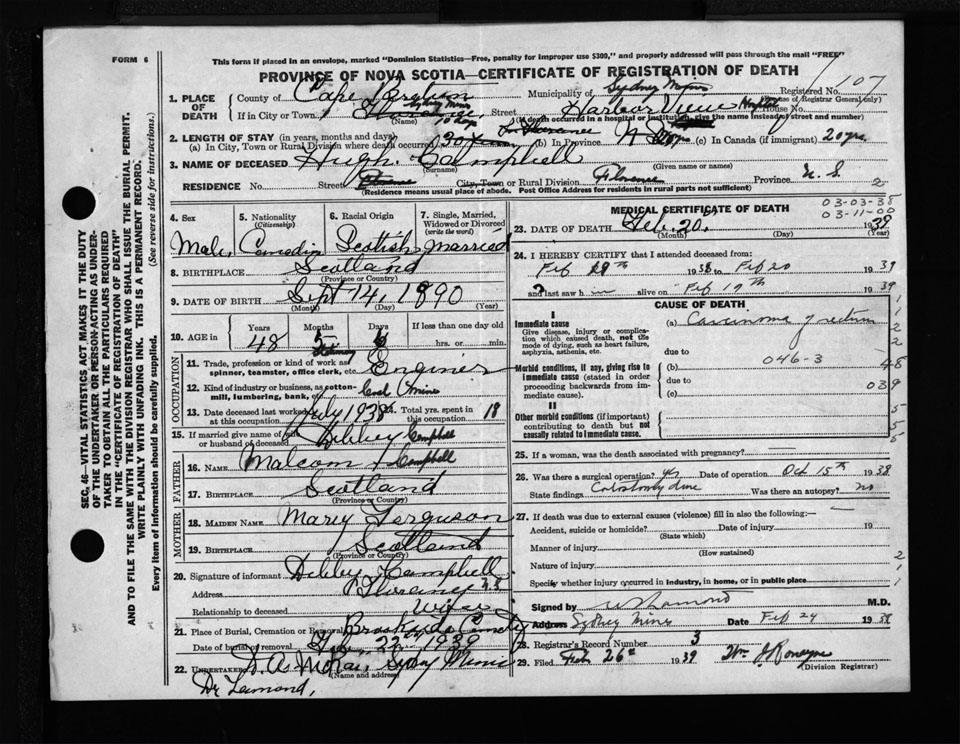 FORM 6
This form if placed in an envelope, marked "Dominion Statistics—Free, penalty for improper use $300," and properly addressed will pass through the mail "FREE"
PROVINCE OF NOVA SCOTIA—CERTIFICATE OF REGISTRATION OF DEATH
Registered No. 107
(For use of Registrar General only)
1. PLACE OF DEATH
County of Cape Breton Municipality of Sydney Mines
If in City or Town Florence Sydney Mines Street Harbor View Hospital House No.
(If death occurred in a hospital or institution, give the name instead of street and number)
2. LENGTH OF STAY (in years, months and days)
(a) In City, Town or Rural Division where death occurred 10 days (b) In Province (c) In Canada (if immigrant) 20 yrs
In Florence
3. NAME OF DECEASED Hugh Campbell
(Surname) (Given name or names)
RESIDENCE No. Street City, Town or Rural Division Florence Province N. S. 2
(Residence means usual place of abode. Post Office Address for residents in rural parts not sufficient)
4. Sex
Male
5. Nationality (Citizenship)
Canadin
6. Racial Origin
Scottish
7. Single, Married, Widowed or Divorced (write the word)
married
8. BIRTHPLACE Scotland
(Province or Country)
9. DATE OF BIRTH Sept 14, 1890
(Month) (Day) (Year)
10. AGE in
Years 48
Months 5
Days 6
If less than one day old
hrs. or min.
OCCUPATION
11. Trade, profession or kind of work as spinner, teamster, office clerk, etc. Enginer
12. Kind of industry or business, as cotton-mill, lumbering, bank, etc. Coal Mine
13. Date deceased last worked at this occupation July 1938 14. Total yrs. spent in this occupation 18
15. If married give name of wife or husband of deceased Dibbey Campbell
FATHER
16. NAME Malcom Campbell
17. BIRTHPLACE Scotland
(Province or Country)
MOTHER
18. MAIDEN NAME Mary Ferguson
19. BIRTHPLACE Scotland
(Province or Country)
20. Signature of informant Dibbey Campbell
Address Florence N.S
Relationship to deceased Wife
21. Place of Burial, Cremation or Removal Brookside Cemetry
Date of burial or removal Feb 22nd 1939
22. UNDERTAKER D. A. Moran, Sydney Mines
(Name and address)
Dr Lamond,
MEDICAL CERTIFICATE OF DEATH
03-03-38
03-11-00
23. DATE OF DEATH Feb. 20. 1939
(Month) (Day) (Year)
24. I HEREBY CERTIFY that I attended deceased from:
Feb 19th 1938 to Feb 20 1939
and last saw him alive on Feb 19th 1939
CAUSE OF DEATH
I
Immediate cause
Give disease, injury or complication which caused death, not the mode of dying, such as heart failure, asphyxia, asthenia, etc.
(a) Carcinoma of rectum
due to
Morbid conditions, if any, giving rise to immediate cause (stated in order proceeding backwards from immediate cause).
(b) 046-3
due to
(c)
48
039
II
Other morbid conditions (if important) contributing to death but not causally related to immediate cause.
25. If a woman, was the death associated with pregnancy? —
26. Was there a surgical operation? yes Date of operation Oct 15th 1938
State findings Colostomy done Was there an autopsy? no
27. If death was due to external causes (violence) fill in also the following:—
Accident, suicide or homicide? Date of injury 19
(State which)
Manner of injury
(How sustained)
Nature of injury
Specify whether injury occurred in industry, in home, or in public place
Signed by M.D.
Address Sydney Mines Date Feb 24 1939
28. Registrar's Record Number 3
29. Filed Feb 26th 1939 Wm J Romeyn
(Division Registrar)
SEC. 46—VITAL STATISTICS ACT, MAKES IT THE DUTY
OF THE UNDERTAKER OR PERSON ACTING AS UNDER-
TAKER TO OBTAIN ALL THE PARTICULARS REQUIRED
IN THE "CERTIFICATE OF REGISTRATION OF DEATH"
AND TO FILE THE SAME WITH THE DIVISION REGISTRAR WHO SHALL ISSUE THE BURIAL PERMIT.
WRITE PLAINLY WITH UNFADING INK. THIS IS A PERMANENT RECORD.
Every item of Information should be carefully supplied. (See reverse side for instructions.)